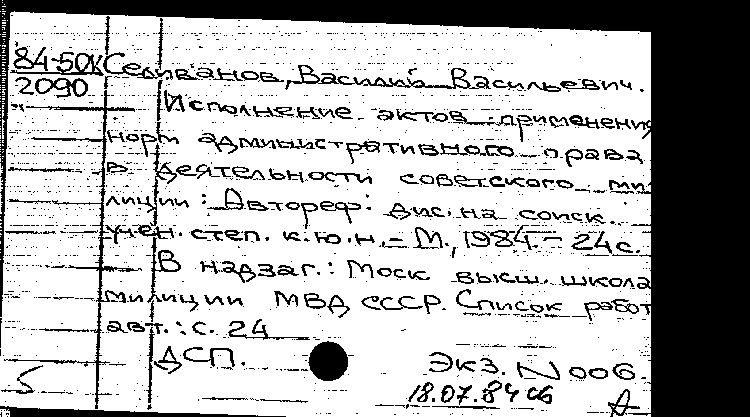 84-50к Селиванов, Василий Васильевич.
2090
Исполнение актов применения
норм административного права
в деятельности советского ми-
лиции : Автореф. дис. на соиск.
учен. степ. к.ю.н. - М., 1984. - 24 с.
В надзаг.: Моск высш. школа
милиции МВД СССР. Список работ
авт.: с. 24
ДСП.
Экз. N 006.
5
18.07.84